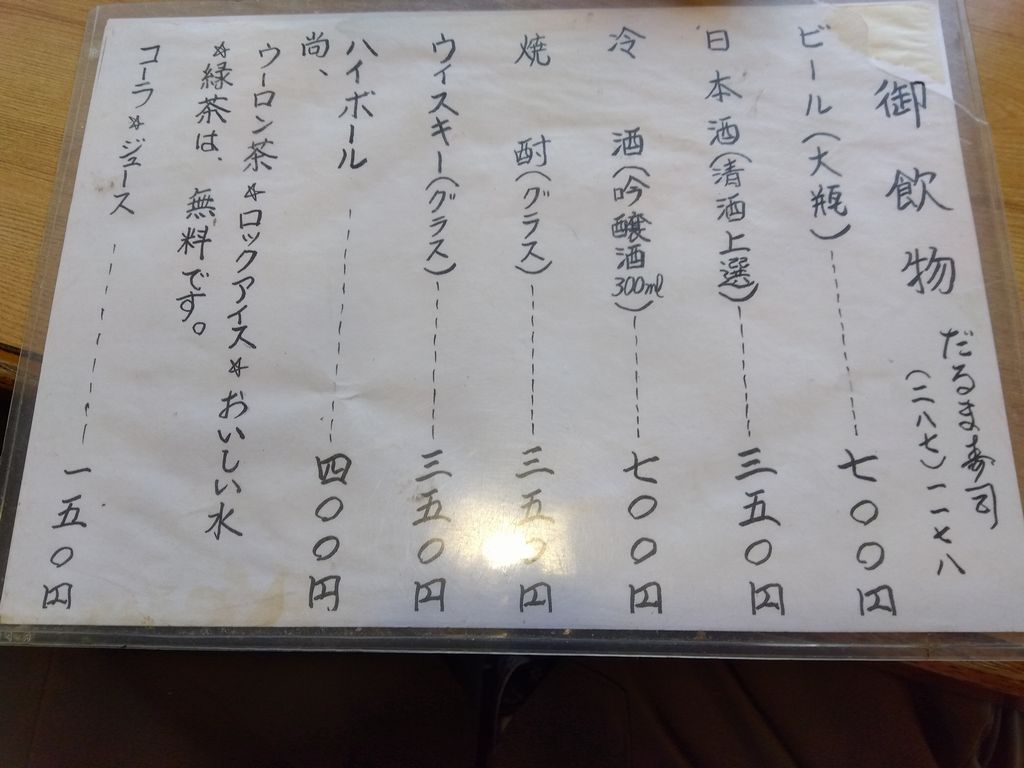 御飲物
だるま寿司
(二八七)一一七八
ビール(大瓶) 七〇〇円
日本酒(清酒上選) 三五〇円
冷酒(吟醸酒300ml) 七〇〇円
焼酎(グラス) 三五〇円
ウィスキー(グラス) 三五〇円
ハイボール 四〇〇円
尚、
ウーロン茶☆ロックアイス☆おいしい水
☆緑茶は、無料です。
コーラ☆ジュース 一五〇円